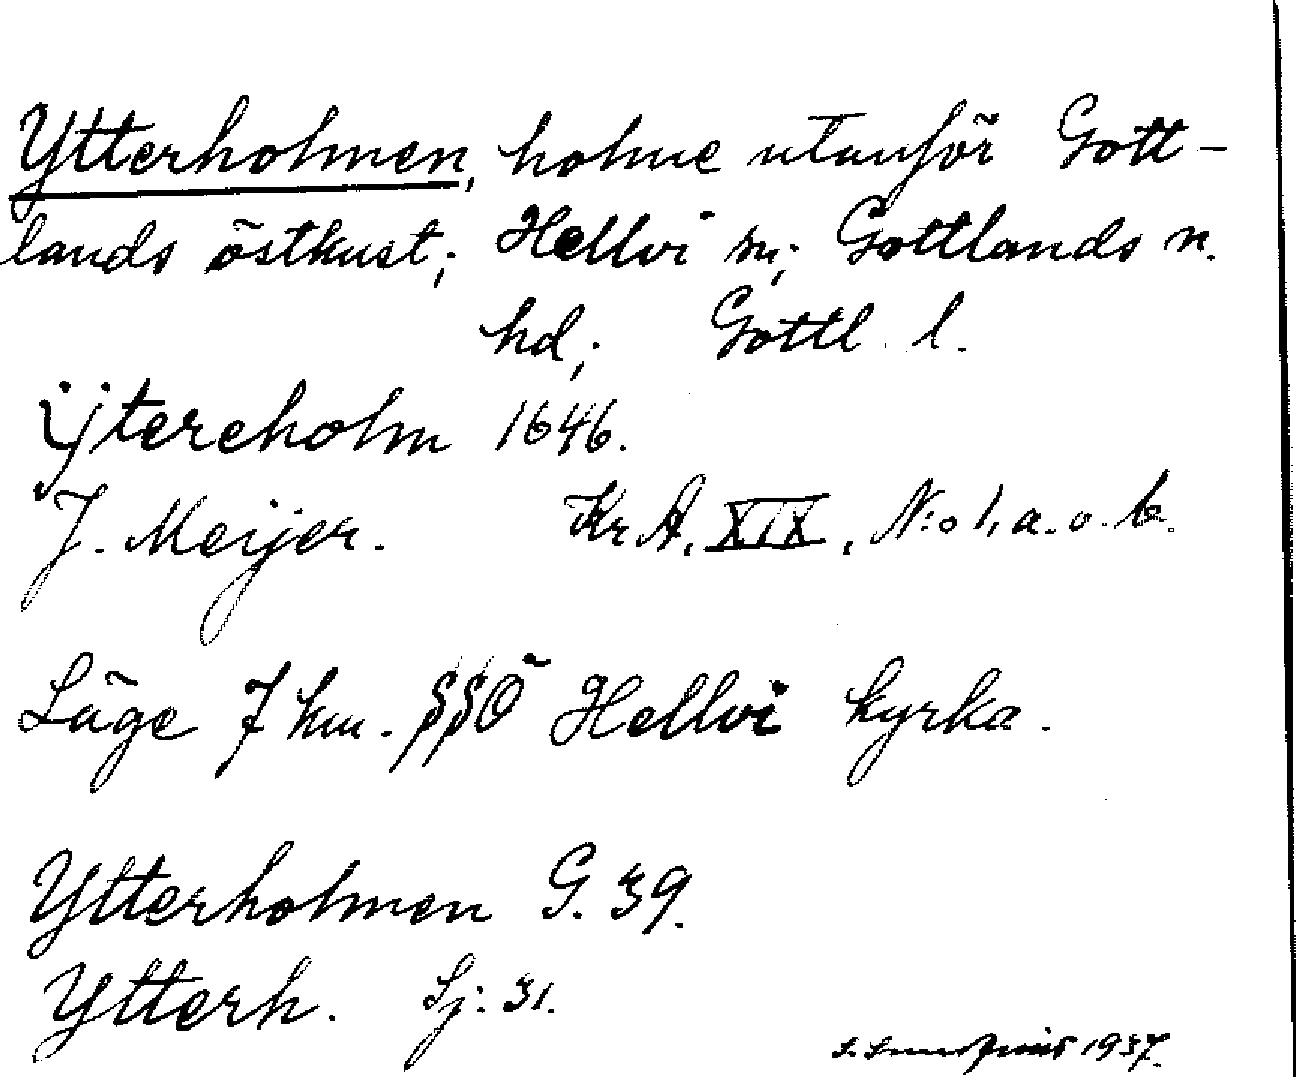 Ytterholmen, holme utanför Gott-
lands östkust; Hellvi sn; Gottlands n.
hd; Gottl. l.
ÿtereholm 1646.
J. Meijer. Kr. A, XIX, N:o 1, a. o. b.
Läge 7 km. SSÖ Hellvi kyrka.
Ytterholmen G. 39.
Ytterh. Sj: 31.
1937.